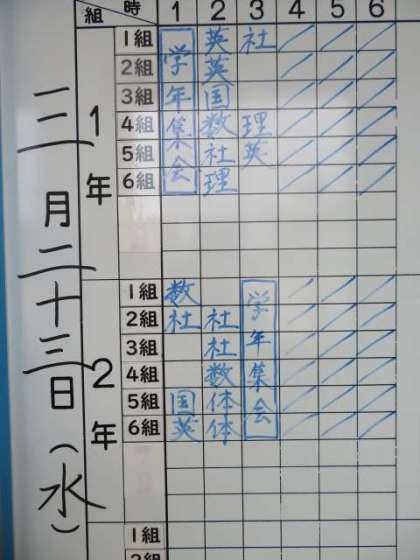 三月二十三日(水)
組 時 1 2 3 4 5 6
1年
1組 英 社
2組 英
3組 国
4組 数 理
5組 社 英
6組 理
学年集会
2年
1組 数
2組 社 社
3組 社
4組 数
5組 国 体
6組 英 体
学年集会
1組